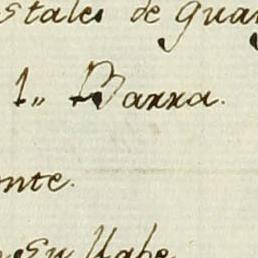 stales de Guar
1,, Barra.
onte.
En Habe